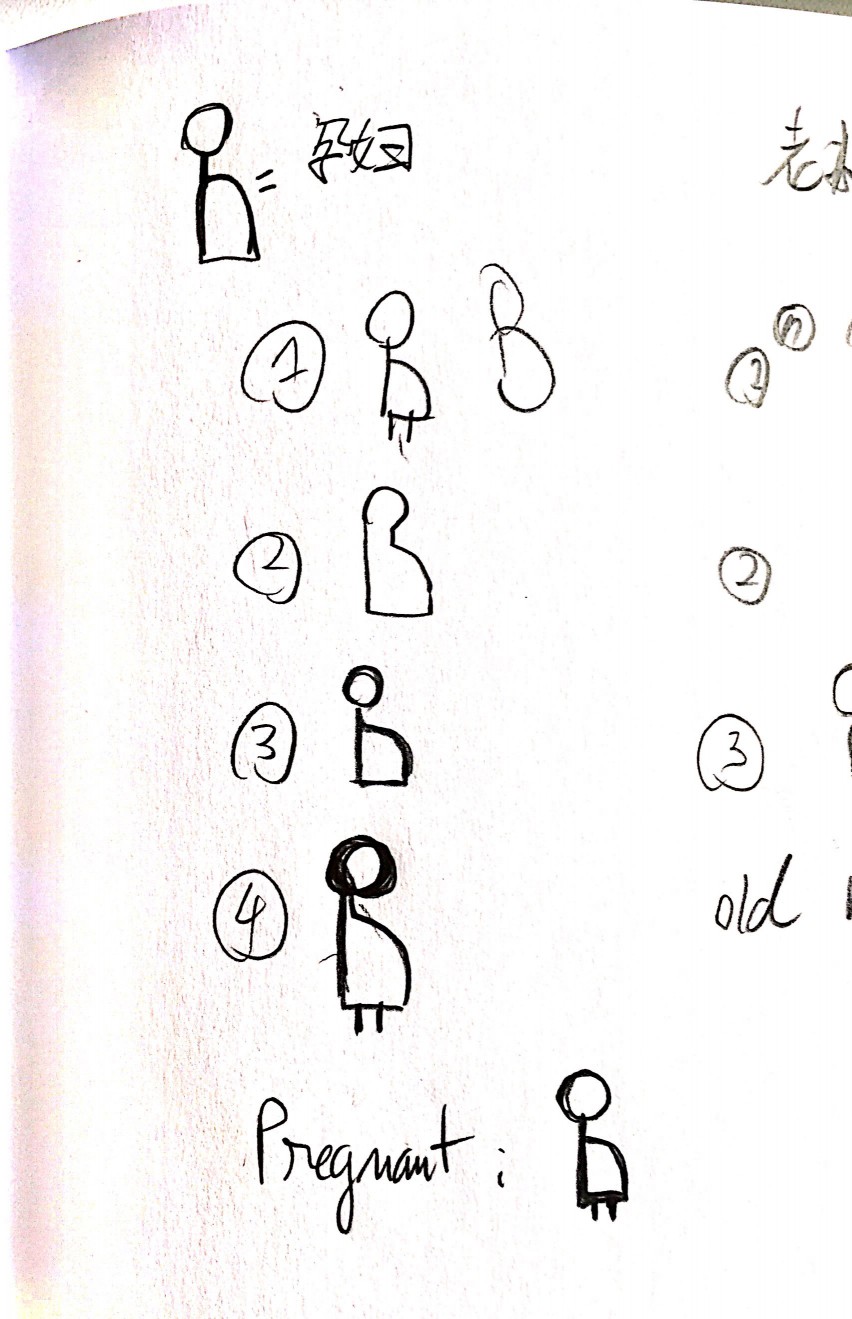 = 孕妇
老
①
②
②
③
③
④
old
Pregnant :